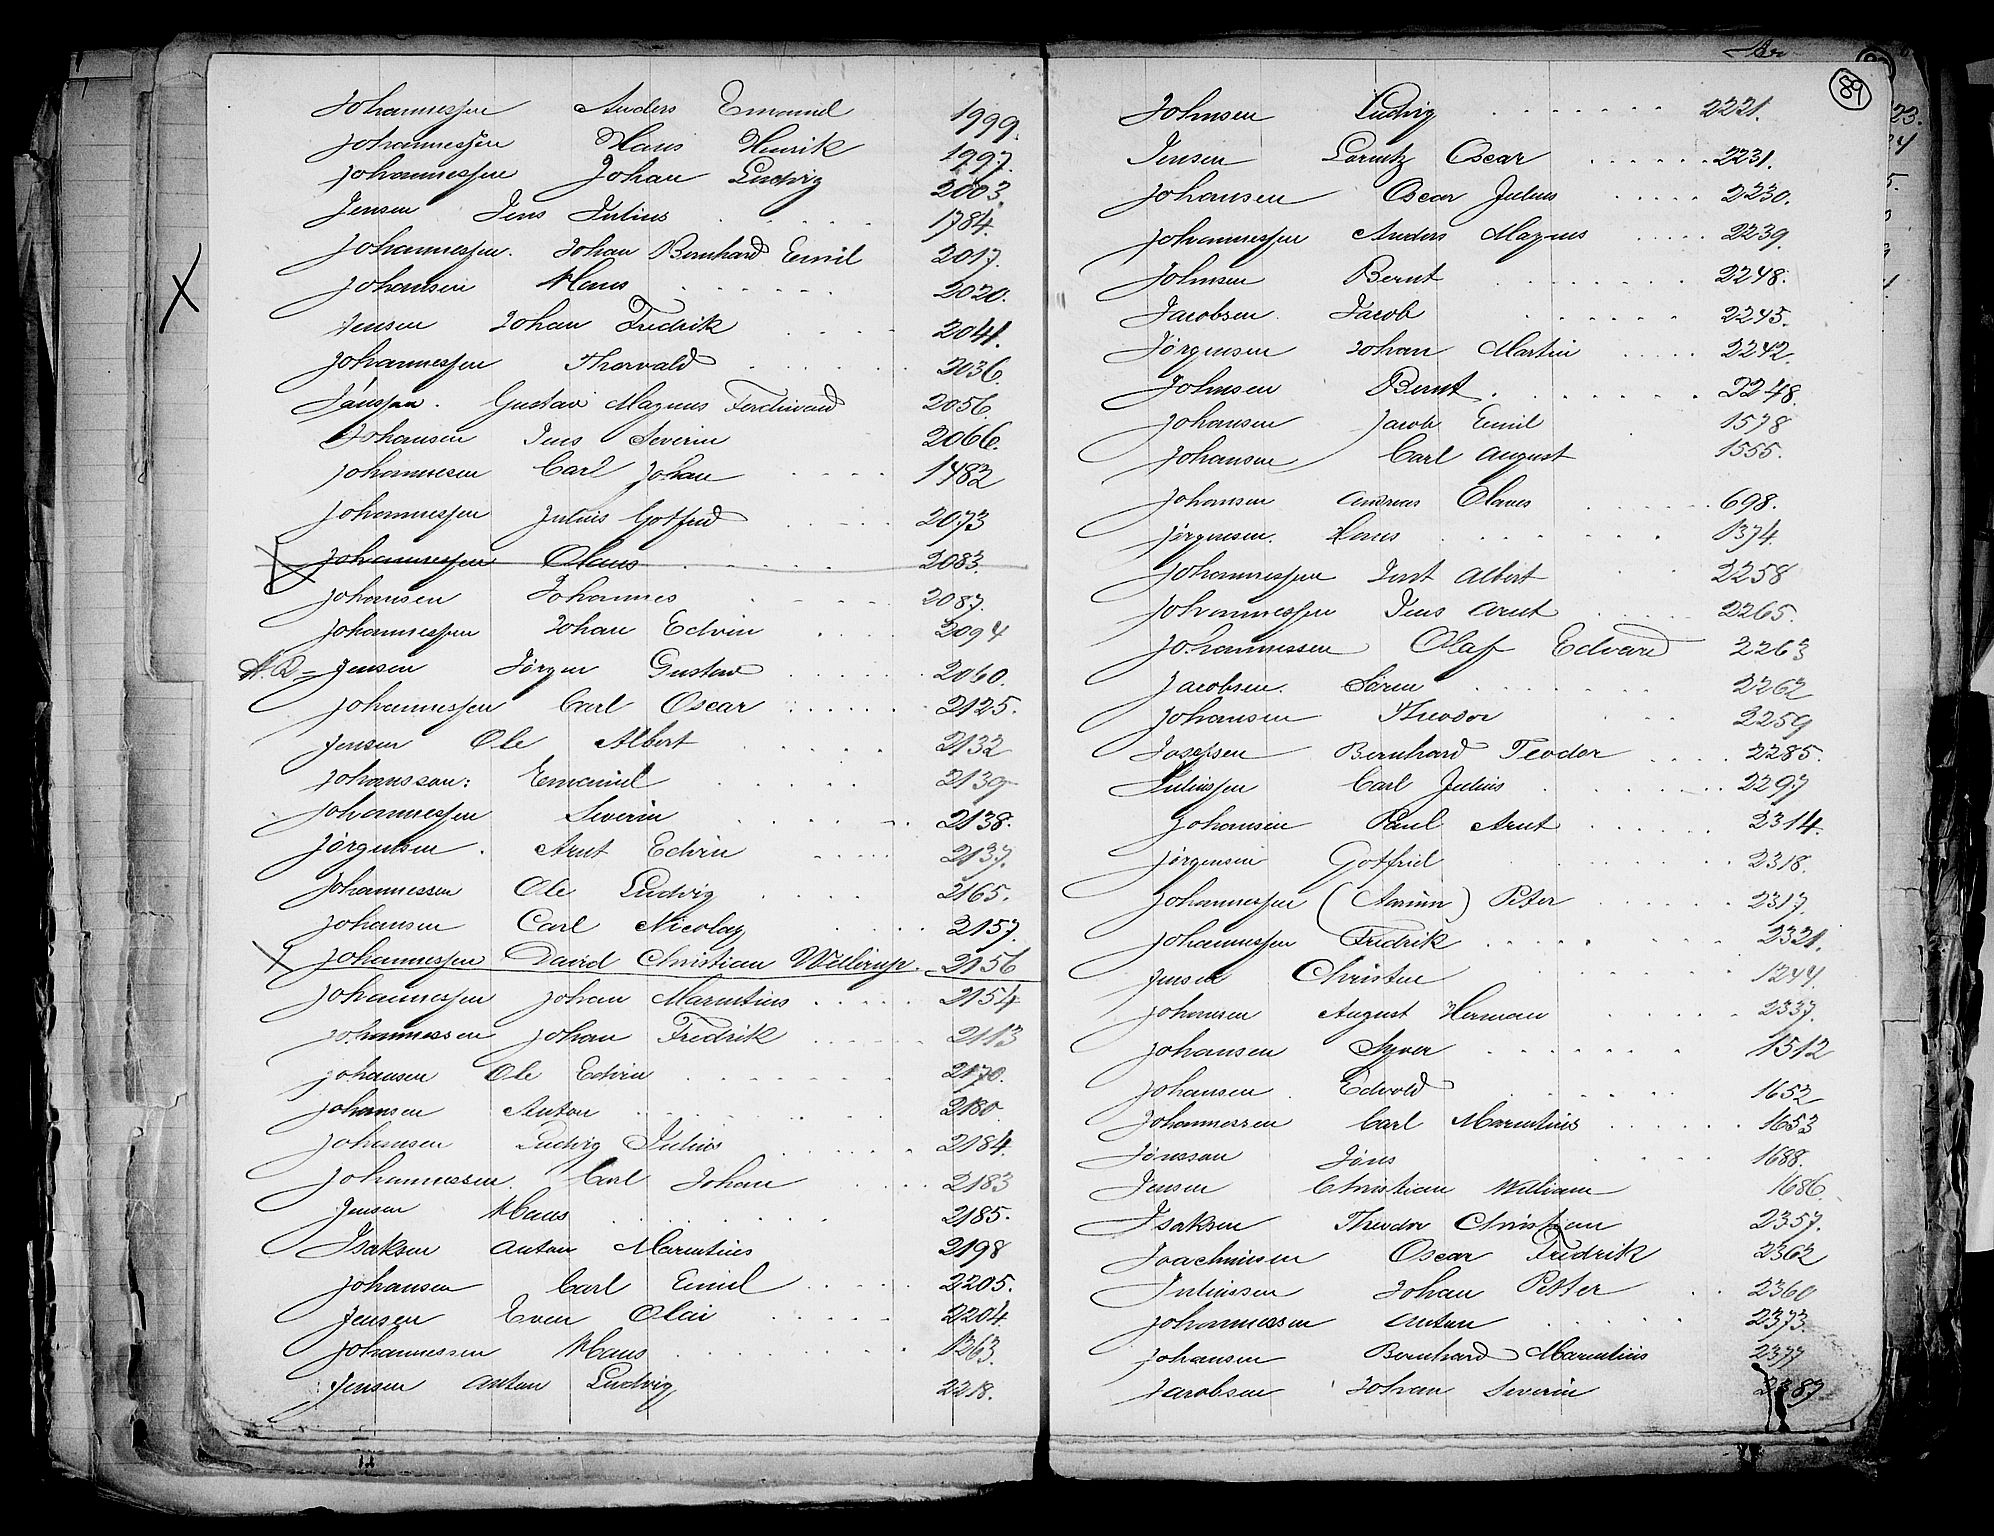 Johannessen Anders Emanuel 1999.
Johannessen Hans Henrik 1997.
Johannessen Johan Ludvig 2003.
Jensen Jens Julius 1784.
Johannessen. Johan Bernhard Emil 2017.
Johansen Hans 2020.
Jensen Johan Fredrik 2041.
Johannessen Thorvald 2036.
Jansson. Gustav Magnus Ferdinand 2056.
Johansen Jens Severin 2066.
Johannesen Carl Johan 1482
Johannessen Julius Gotfred 2073
Johannessen Olaus 2083.
Johansen Johannes 2087.
Johannessen Johan Edvin 2094
Jensen Jørgen Gustav 2060.
Johannessen Carl Oscar 2125.
Jensen Ole Albert 2132
Johansson: Emanuel 2139
Johannessen Severin 2138.
Jørgensen. Arnt Edvin 2137.
Johannessen Ole Ludvig 2165.
Johansen Carl Nicolay 2157.
Johannessen David Christian Willerup. 2156
Johannessen Johan Marentius 2154
Johannessen Johan Fredrik 2113
Johansen Ole Edvin 2170.
Johansen Anton 2180.
Johansen Ludvig Julius 2184.
Johannessen. Carl Johan 2183
Jensen Hans 2185.
Isaksen Anton Marentius 2198
Johansen Carl Emil 2205.
Jensen Even Olai 2204.
Johannessen Hans 1363.
Jensen Anton Ludvig 2218.
89
Johnsen Ludvig 2221.
Jensen Lorentz Oscar 2231.
Johansen Oscar Julius 2230.
Johannessen Anders Magnus 2239.
Johnsen Bernt 2248.
Jacobsen. Jacob 2245.
Jørgensen Johan Martin 2242.
Johnsen Bernt 2248.
Johansen Jacob Emil 1578
Johansen Carl August 1555.
Johansen Andreas Olaus 698.
Jørgensen. Hans 1374.
Johannessen Albert 2258
Johannessen Jens Arnt 2265.
Johannessen Olaf Edvard 2263
Jacobsen. Søren 2262
Johansen Theodor 2259
Josefsen Bernhard Teodor 2285.
Juliussen Carl Julius 2297
Johansen Paul Arnt 2314.
Jørgensen Gotfried 2318.
Johannessen Peter 2317.
Johannessen Fredrik 2321.
Jensen Christen 1244.
Johansen August Herman 2337.
Johansen Syver 1512
Johansen. Edvold 1652
Johannessen Carl Marentius 1653
Jönsson Jöns 1688.
Jensen Christian William 1686.
Isaksen Theodor Christian 2357.
Joachimsen Oscar Fredrik 2362
Juliussen Johan Petter 2360
Johannessen Anton 2373.
Johansen Bernhard Marentius 2377
Jacobsen Johan Severin 2387